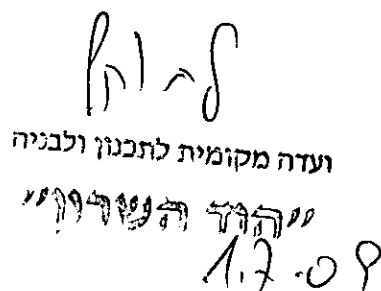 לא בתוקף
ועדה מקומית לתכנון ולבניה
"הוד השרון"
1.7.09